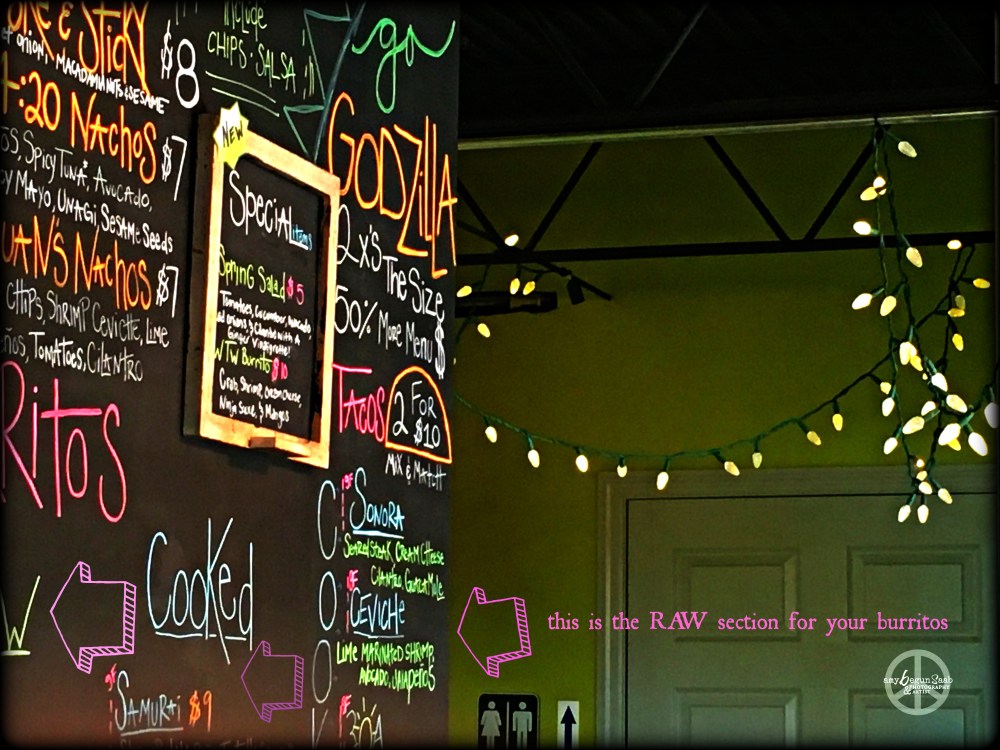 & Sticky $8
onion, MACADAMIA NUTS & SESAME
:20 NACHOS $7
SPICY TUNA, AVOCADO,
MAYO, UNAGI, SESAME SEEDS
UAN'S NACHOS $7
CHIPS, SHRIMP CEVICHE, LIME
TOMATOES, CILANTRO
RITOS
W
COOKED
SAMURAI $9
include
CHIPS & SALSA
NEW
Special items
Spring Salad $5
Tomatoes, Cucumber, Avocado
Red onions & Chunks with A
Ginger Vinaigrette!
WTW Burrito $10
Crab, Shrimp, Cream Cheese,
Ninja Sauce, & Mangos
go
GODZILLA
2x's The Size
50% More Menu $
TACOS
2 FOR $10
MIX & MATCH
GF
SONORA
SEARED STEAK, CREAM CHEESE
GF
CEVICHE
LIME MARINATED SHRIMP,
AVOCADO, JALAPEÑOS
GF
this is the RAW section for your burritos
amy begun saab
PHOTOGRAPHY
& ARTIST